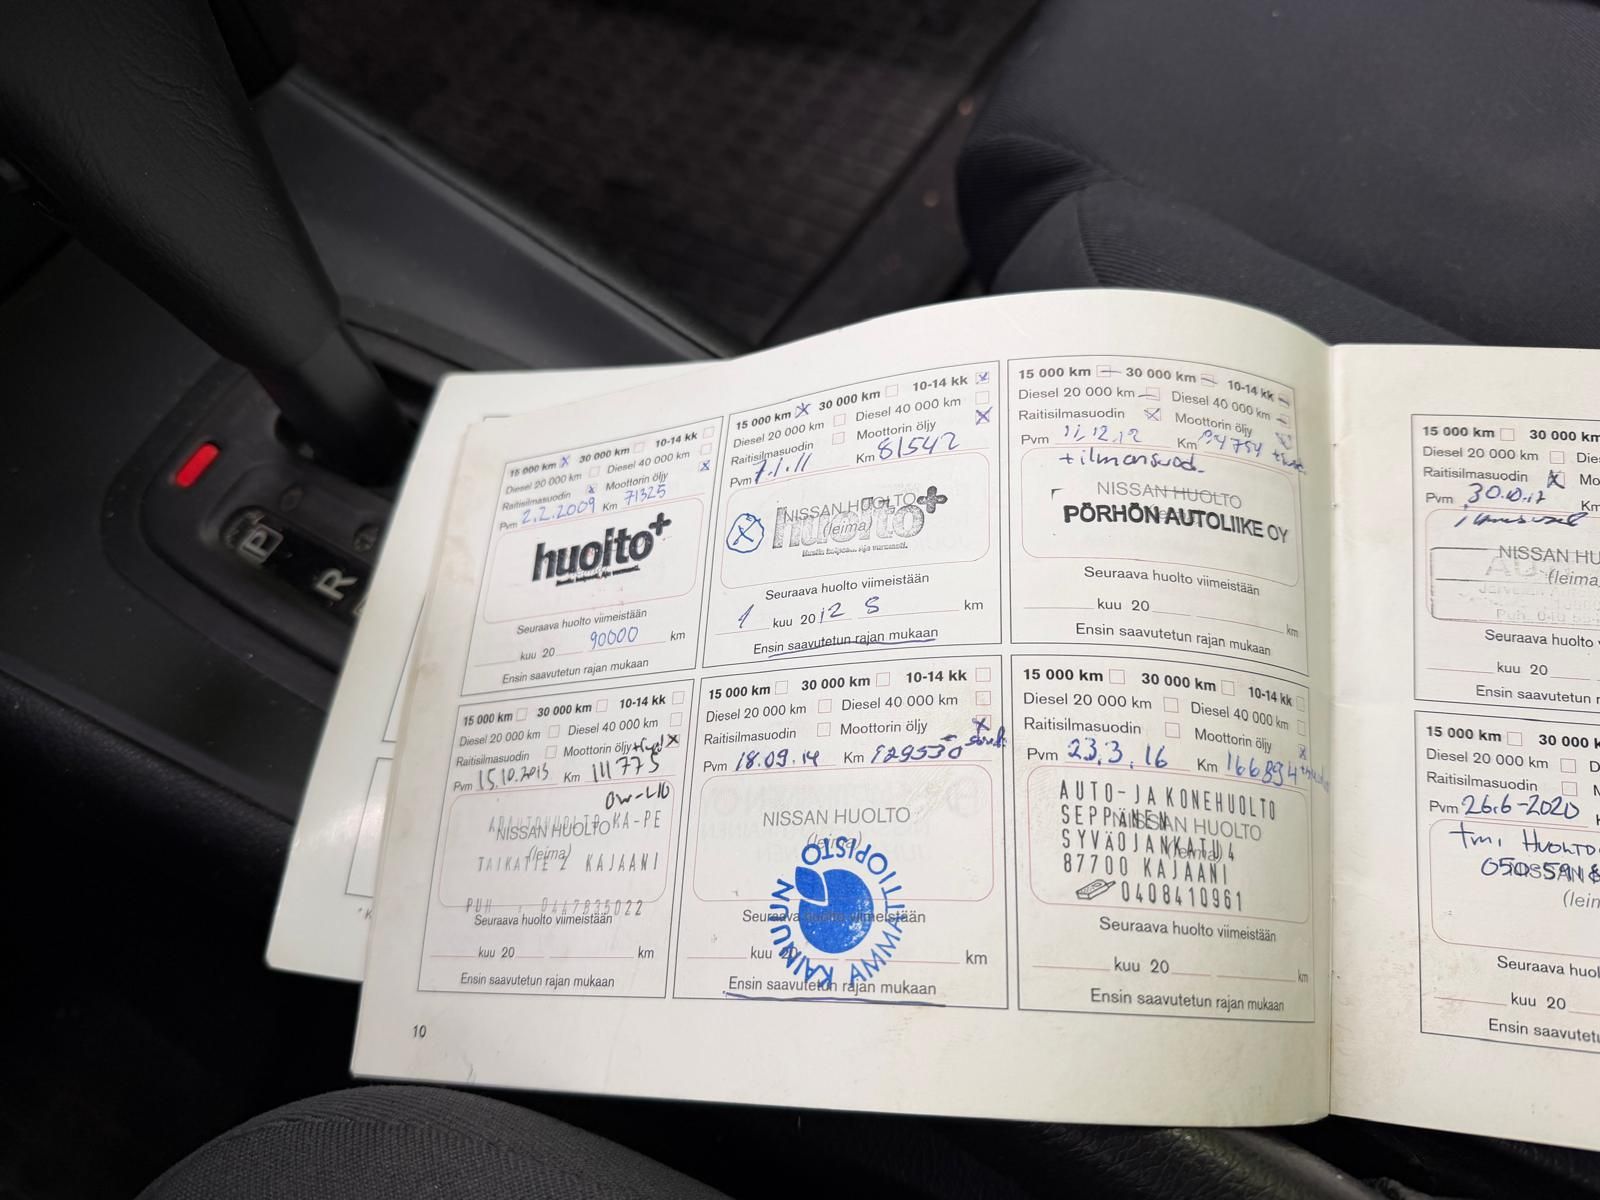 P
R
15 000 km 30 000 km 10-14 kk
Diesel 20 000 km Diesel 40 000 km
Raitisilmasuodin Moottorin öljy
Pvm 2.2.2009 Km 71325
huolto+
Seuraava huolto viimeistään
kuu 20 90000 km
Ensin saavutetun rajan mukaan
15 000 km 30 000 km 10-14 kk
Diesel 20 000 km Diesel 40 000 km
Raitisilmasuodin Moottorin öljy
Pvm 7.1.11 Km 81542
NISSAN HUOLTO
(leima)
huolto+
Seuraava huolto viimeistään
1 kuu 20 12 S km
Ensin saavutetun rajan mukaan
15 000 km 30 000 km 10-14 kk
Diesel 20 000 km Diesel 40 000 km
Raitisilmasuodin Moottorin öljy
Pvm 11.12.12 Km
+ilmansuod.
NISSAN HUOLTO
PÖRHÖN AUTOLIIKE OY
Seuraava huolto viimeistään
kuu 20 km
Ensin saavutetun rajan mukaan
15 000 km 30 000 km 10-14 kk
Diesel 20 000 km Diesel 40 000 km
Raitisilmasuodin Moottorin öljy
Pvm 15.10.2013 Km 111775
0w-40
NISSAN HUOLTO KA-PE
(leima)
TAIKATIE 2 KAJAANI
PUH : 0447835022
Seuraava huolto viimeistään
kuu 20 km
Ensin saavutetun rajan mukaan
15 000 km 30 000 km 10-14 kk
Diesel 20 000 km Diesel 40 000 km
Raitisilmasuodin Moottorin öljy
Pvm 18.09.14 Km 129530
NISSAN HUOLTO
(leima)
KAINUUN AMMATTIOPISTO
Seuraava huolto viimeistään
kuu 20 km
Ensin saavutetun rajan mukaan
15 000 km 30 000 km 10-14 kk
Diesel 20 000 km Diesel 40 000 km
Raitisilmasuodin Moottorin öljy
Pvm 23.3.16 Km 166894
AUTO- JA KONEHUOLTO
SEPPÄNEN
NISSAN HUOLTO
SYVÄOJANKATU 4
87700 KAJAANI
0408410961
Seuraava huolto viimeistään
kuu 20 km
Ensin saavutetun rajan mukaan
10
15 000 km 30 000
Diesel 20 000 km
Raitisilmasuodin Mo
Pvm 30.10.17 Km
NISSAN HU
(leima)
Seuraava huolto
kuu 20
Ensin saavutetun
15 000 km 30 000
Diesel 20 000 km D
Raitisilmasuodin M
Pvm 26.6-2020
tmi Huolto
050 59
NISSAN
(lein
Seuraava huol
kuu 20
Ensin saavutetu